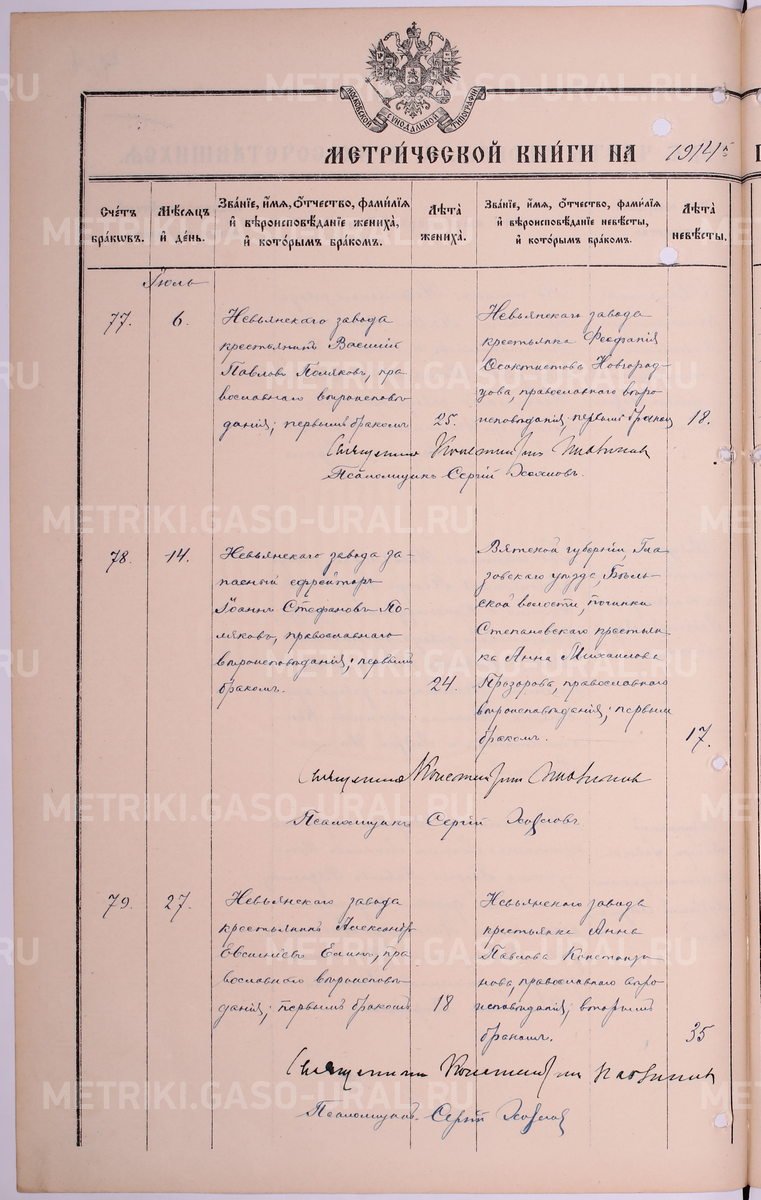 МОСКОВСКОЙ СѴНОДАЛЬНОЙ ТИПОГРАФІИ
МЕТРИ́ЧЕСКОЙ КНИ́ГИ НА 1914
Сче́тъ бра́кωвъ.
Мѣ́сяцъ и҆ де́нь.
Зва́ніе, и҆́мя, ѻ҆́тчество, фами́лія и҆ вѣроисповѣ́даніе жениха̀, и҆ кото́рымъ бра́комъ.
Лѣ́та жениха̀.
Зва́ніе, и҆́мя, ѻ҆́тчество, фами́лія и҆ вѣроисповѣ́даніе невѣ́сты, и҆ кото́рымъ бра́комъ.
Лѣ́та невѣ́сты.
Іюль
77.
6.
Невьянскаго завода
крестьянинъ Василій
Павловъ Поляковъ, пра
вославнаго вѣроисповѣ
данія; первымъ бракомъ
25.
Невьянскаго завода
крестьянка Феофанія
Новгород
цова, православнаго вѣро
исповѣданія; первымъ бракомъ
18.
Священникъ Константинъ
Псаломщикъ Сергій
78.
14.
Невьянскаго завода за
пасный ефрейторъ
Іоаннъ Стефановъ По
ляковъ, православнаго
вѣроисповѣданія; первымъ
бракомъ.
24.
Вятской губерніи, Гла
зовскаго уѣзда, Бѣль
ской волости, починка
Степановскаго крестьян
ка Анна Михаилова
Прозорова, православнаго
вѣроисповѣданія; первымъ
бракомъ.
17.
Священникъ Константинъ
Псаломщикъ Сергій
79.
27.
Невьянскаго завода
крестьянинъ Александръ
Евсигніевъ Елинъ, пра
вославнаго вѣроисповѣ
данія; первымъ бракомъ
18
Невьянскаго завода
крестьянка Анна
Павлова Константи
нова, православнаго вѣро
исповѣданія; вторымъ
бракомъ.
35
Священникъ Константинъ
Псаломщикъ Сергій
METRIKI.GASO-URAL.RU